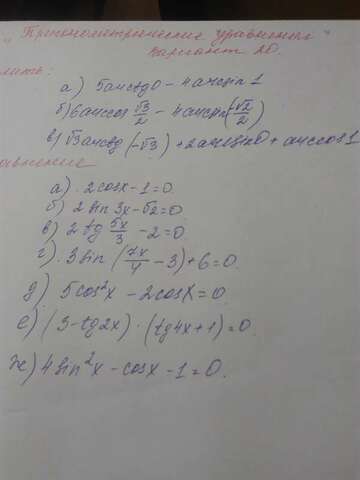 "Тригонометрические уравнения"
Вариант 20.
лить:
а) 5arcctg0 - 4arcsin 1
б) 6arccos √3/2 - 4arcsin(-√2/2)
в) √3arcctg(-√3) + 2arcsin0 + arccos1
авнение
а) 2cosx-1=0.
б) 2sin 3x-√2=0
в) 2tg 5x/3 -2=0.
г) 3sin (7x/4 -3)+6=0.
д) 5cos²x - 2cosx=0
е) (3-tg2x)·(tg4x+1)=0
ж) 4sin²x-cosx-1=0.